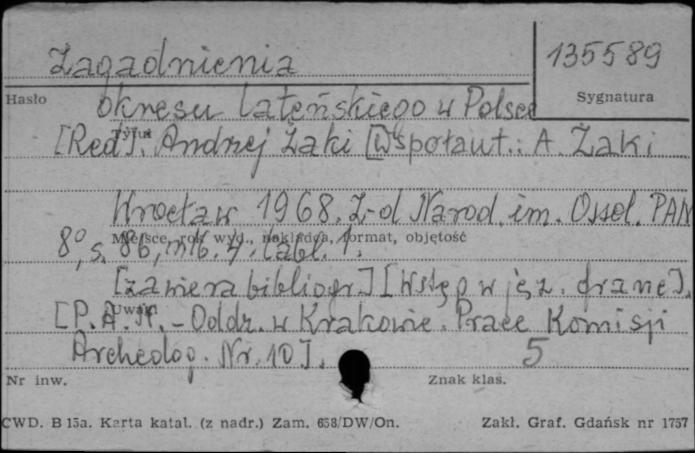 Zagadnienia
135589
Hasło
Sygnatura
okresu lateńskiego w Polsce
Tytuł
[Red]. Andrzej Żaki [Współaut.: A. Żaki
Wrocław 1968. Z-d Narod. im. Ossol. PAN
Miejsce, rok wyd., nakładca, format, objętość
8°, s. 86, mb. 4. tabl. 1.
[zawiera bibliogr.] [Wstęp w jęz. franc].
Uwagi
[P.A.N. - Oddz. w Krakowie. Prace Komisji
Archeolog. Nr. 10].
5
Nr inw.
Znak klas.
CWD. B 15a. Karta katal. (z nadr.) Zam. 658/DW/On.
Zakł. Graf. Gdańsk nr 1757